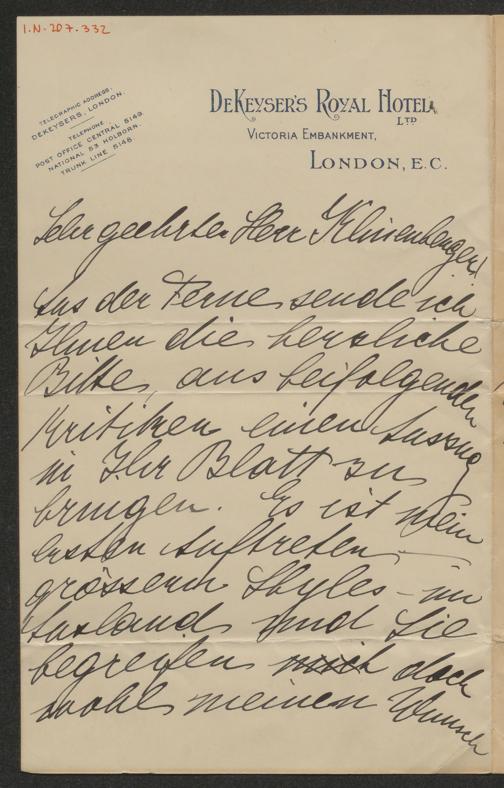 I.N. 207.332
TELEGRAPHIC ADDRESS:
DEKEYSERS, LONDON.
TELEPHONE
POST OFFICE CENTRAL 5149.
NATIONAL 53 HOLBORN.
TRUNK LINE 5148.
DEKEYSER'S ROYAL HOTEL
LTD
VICTORIA EMBANKMENT,
LONDON, E.C.
Sehr geehrter Herr Klinenberger!
Aus der Ferne sende ich
Ihnen die herzliche
Bitte, aus beifolgenden
Kritiken einen Auszug
in Ihr Blatt zu
bringen. Es ist mein
erstes Auftreten –
grösseren Styles – im
Ausland und Sie
begreifen mich doch
wohl meinen Wunsch